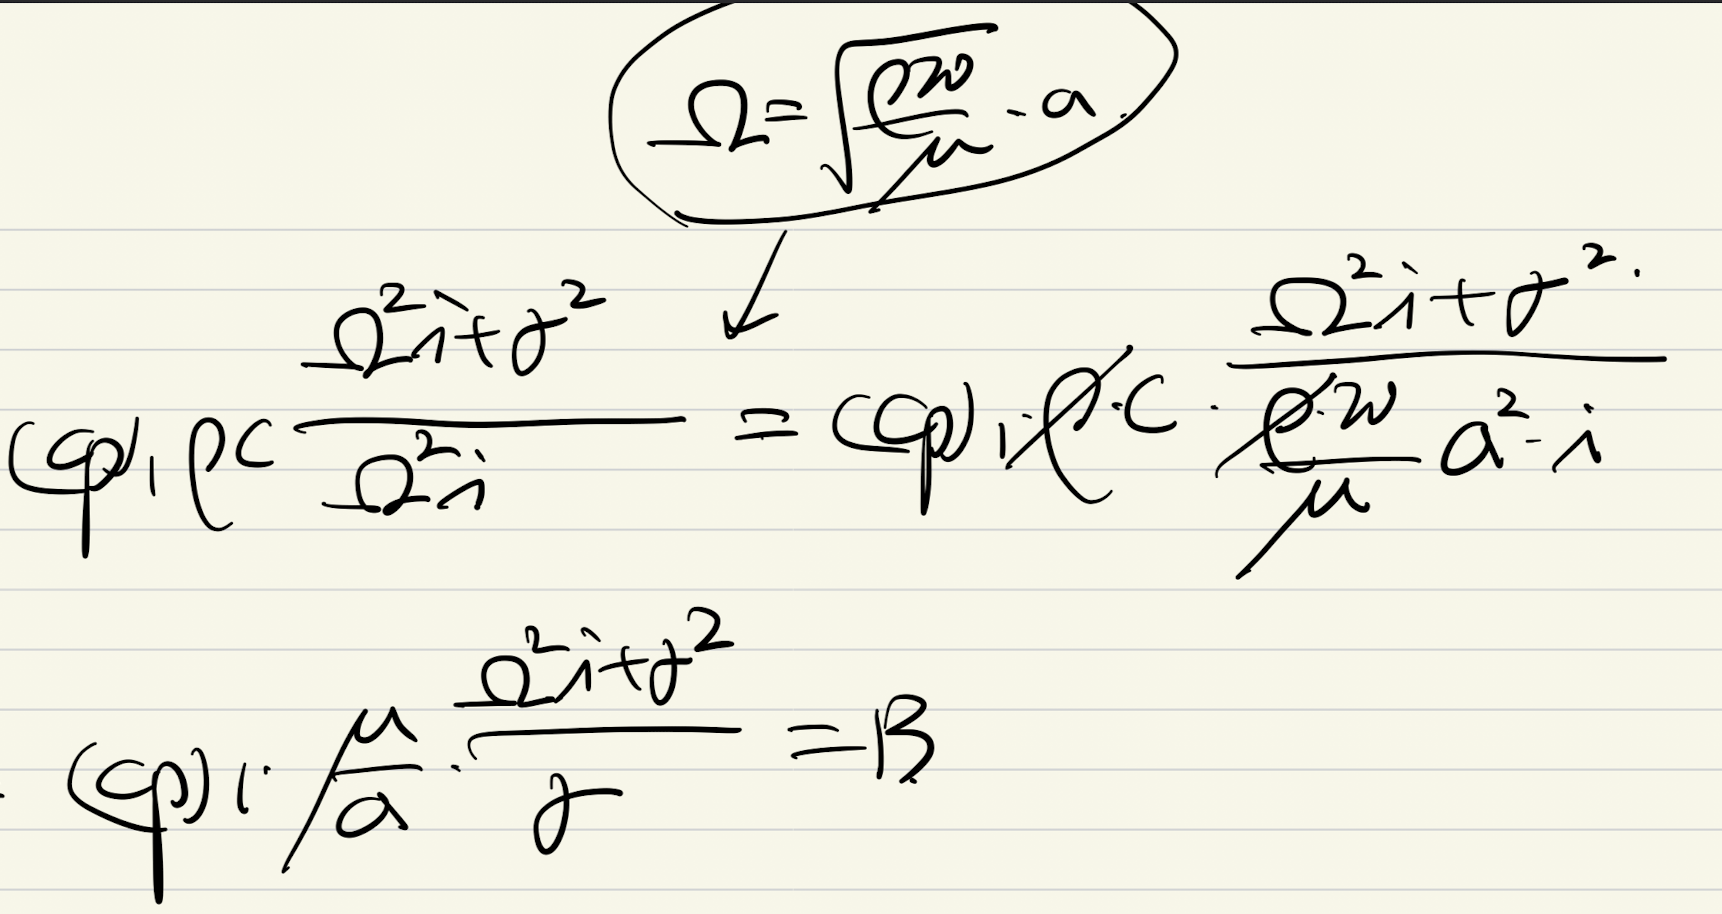 Ω = √(ρω/μ) · a
(φ)₁ ρc (Ω²i + γ²)/(Ω²i) = (φ)₁ · ρ · c · (Ω²i + γ²)/((ρ·ω/μ) a² · i)
(φ)₁ · μ/a · (Ω²i + γ²)/γ = B